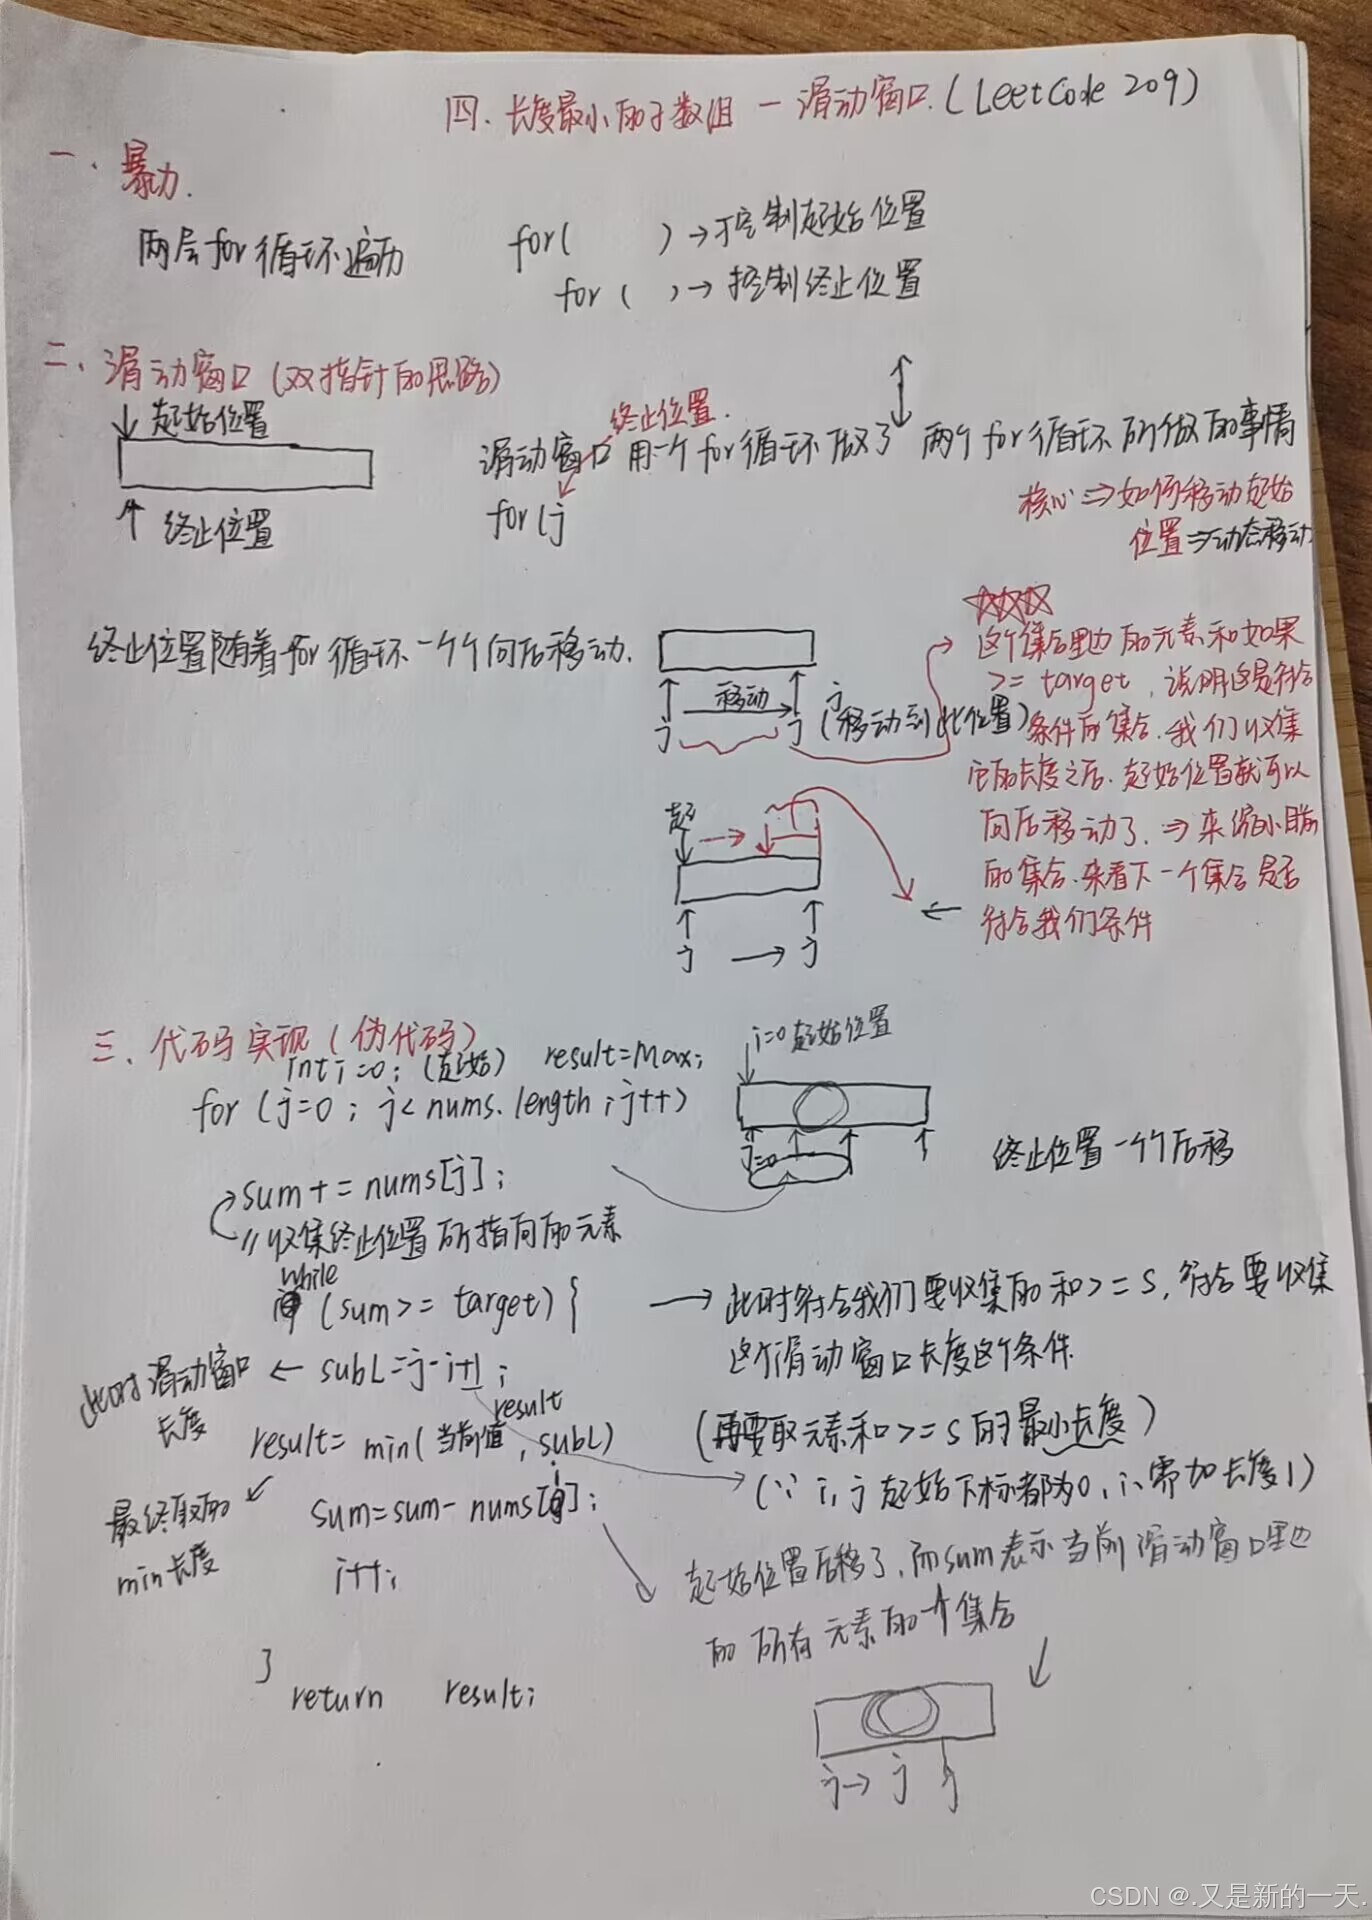 四、长度最小的子数组 — 滑动窗口.(LeetCode 209)
一、暴力.
两层for循环遍历
for( ) → 控制起始位置
for ( ) → 控制终止位置
二、滑动窗口(双指针的思路)
起始位置
终止位置
终止位置.
滑动窗口 用一个for循环 做了 两个for循环 所做的事情
for(j
核心 ⇒ 如何移动起始
位置 ⇒ 动态移动
终止位置随着for循环一个个向后移动.
移动
j j (移动到此位置)
这个集合里边的元素和如果
>= target, 说明这是符合
条件的集合.我们收集
它的长度之后.起始位置就可以
向后移动了. ⇒ 来缩小
的集合.来看下一个集合是否
符合我们条件
起
j → j
三、代码实现(伪代码)
int i=0; (起始) result=Max;
for (j=0; j<nums.length; j++)
i=0起始位置
j=0
终止位置一个个后移
sum += nums[j];
//收集终止位置所指向的元素
while
(sum >= target) {
→ 此时符合我们要收集的和>=s,符合要收集
这个滑动窗口长度这个条件.
滑动窗口
长度
← subL=j-i+1;
result
result= min(当前值, subL)
(再要取元素和>=s的最小长度)
(∵ i,j 起始下标都为0, ∴需加长度1)
最终取的
min长度
sum=sum- nums[i];
i++;
起始位置后移了.而sum表示当前滑动窗口里边
的所有元素的一个集合
}
return result;
j → j j
CSDN @.又是新的一天.